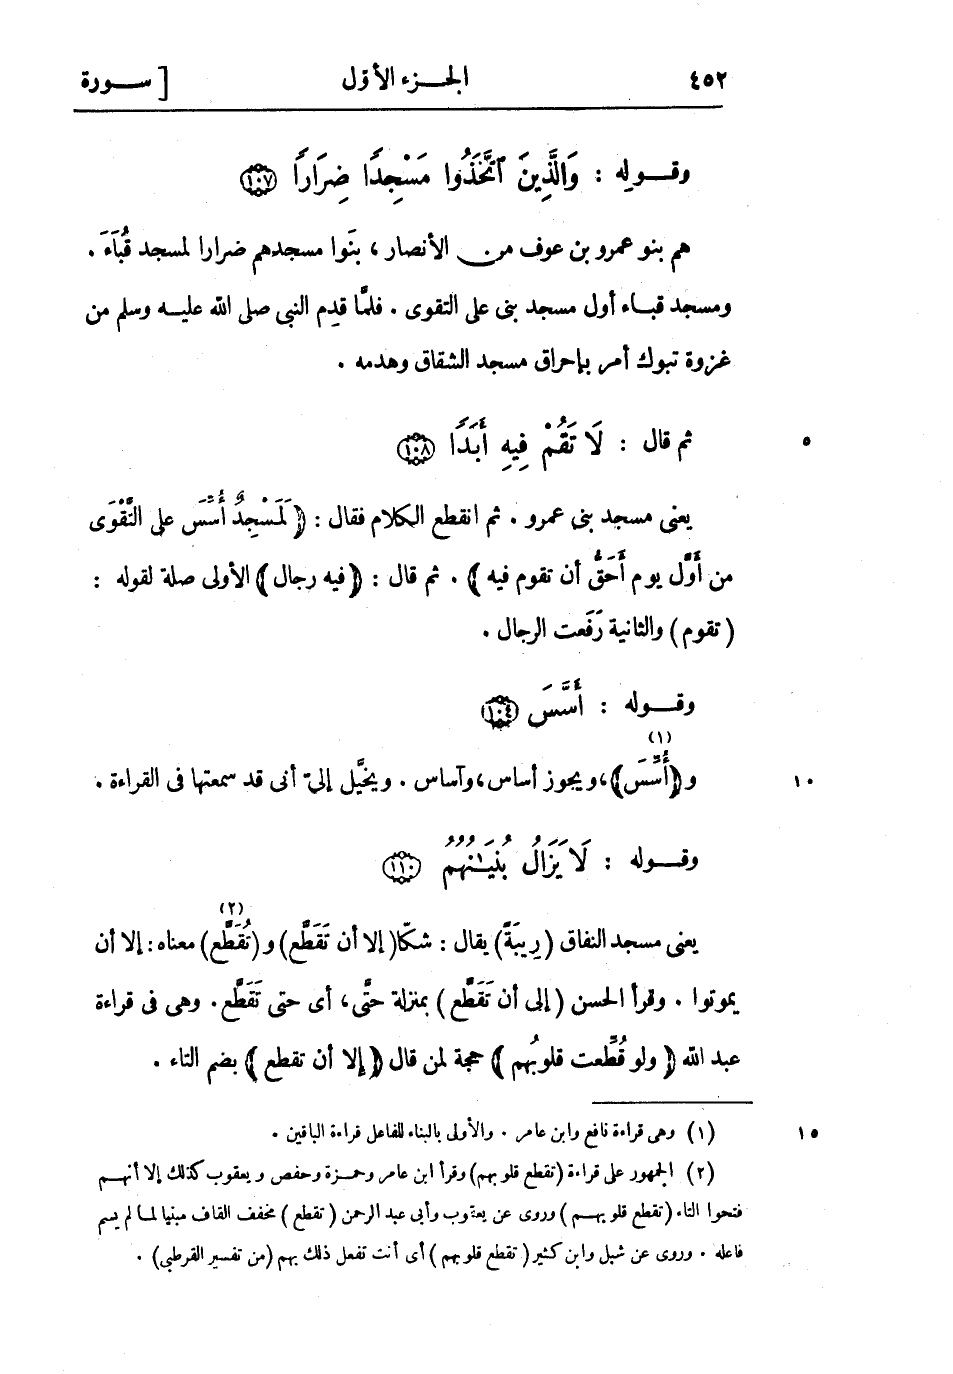 ٤٥٢ الجـزء الأوّل [ ســورة
وقـــوله : وَالَّذِينَ ٱتَّخَذُوا مَسْجِدًا ضِرَارًا (١٠٧)
هم بنو عمرو بن عوف من الأنصار ، بنَوا مسجدهم ضرارا لمسجد قُبَاءَ .
ومسجد قبـاء أول مسجد بنى على التقوى . فلمَّا قدِم النبى صلى الله عليـه وسلم من
غزوة تبوك أمر بإحراق مسجد الشقاق وهدمه .
ثم قال : لَا تَقُمْ فِيهِ أَبَدًا (١٠٨) ٥
يعنى مسجد بنى عمرو . ثم انقطع الكلام فقال : ﴿ لَمَسْجِدٌ أُسِّسَ على التَّقْوَى
من أوَّل يوم أَحَقُّ أن تقوم فيه ﴾ . ثم قال : ﴿ فيه رجال ﴾ الأولى صلة لقوله :
( تقوم ) والثانية رَفَعت الرجال .
وقـــوله : أَسَّسَ (١٠٤)
و﴿ أُسِّسَ ﴾(١)، ويجوز أساس ، وآساس . ويخيَّل إلىّ أنى قد سمعتها فى القراءة . ١٠
وقـــوله : لَا يَزَالُ بُنْيَـٰنُهُمُ (١١٠)
يعنى مسجد النفاق ( رِيبَةً ) يقال : شكّا ( إلا أن تَقَطَّع ) و ( تُقَطَّع )(٢) معناه : إلا أن
يموتوا . وقرأ الحسن ( إلى أن تَقَطَّع ) بمنزلة حتَّى ، أى حتى تَقَطَّع . وهى فى قراءة
عبد الله ﴿ ولو قُطِّعت قلوبُهم ﴾ حجة لمن قال ﴿ إلا أن تقطع ﴾ بضم التاء .
(١) وهى قراءة نافع وابن عامر . والأولى بالبناء للفاعل قراءة الباقين . ١٥
(٢) الجمهور على قراءة ( تقطع قلوبهم ) وقرأ ابن عامر وحمـزة وحفص ويعقوب كذلك إلا أنهـم
فتحوا التاء ( تقطع قلوبهـم ) وروى عن يعقوب وأبى عبد الرحمن ( تقطع ) مخفف القاف مبنيا لمـا لم يسم
فاعله . وروى عن شبل وابن كثير ( تقطع قلوبهم ) أى أنت تفعل ذلك بهم (من تفسير القرطبي) .